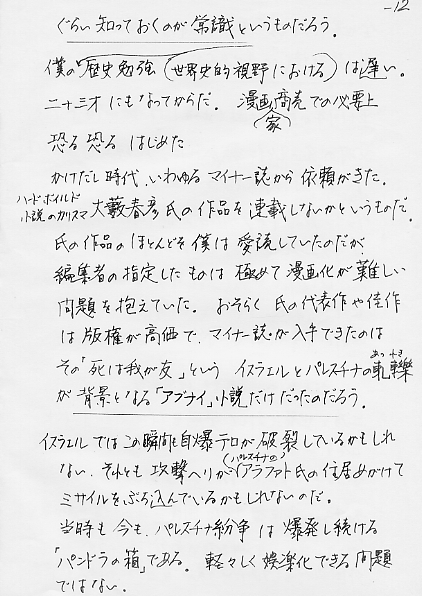 -12
ぐらい知っておくのが常識というものだろう。
僕の歴史勉強(世界史的視野における)は遅い。
二十三才にもなってからだ。漫画商売での必要上
家
恐る恐るはじめた
かけだし時代、いわゆるマイナー誌から依頼がきた。
ハードボイルド
小説のカリスマ大藪春彦氏の作品を連載しないかというものだ。
氏の作品のほとんどを僕は愛読していたのだが
編集者の指定したものは極めて漫画化が難しい
問題を抱えていた。おそらく氏の代表作や佳作
は版権が高価で、マイナー誌が入手できたのは
その「死は我が友」というイスラエルとパレスチナの軋轢
あつれき
が背景となる「アブナイ」小説だけだったのだろう。
イスラエルではこの瞬間も自爆テロが破裂しているかもしれ
ない、それとも攻撃ヘリが(パレスチナの)アラファト氏の住居めがけて
ミサイルをぶち込んでいるかもしれないのだ。
当時も今も、パレスチナ紛争は爆発し続ける
「パンドラの箱」である。軽々しく娯楽化できる問題
ではない。